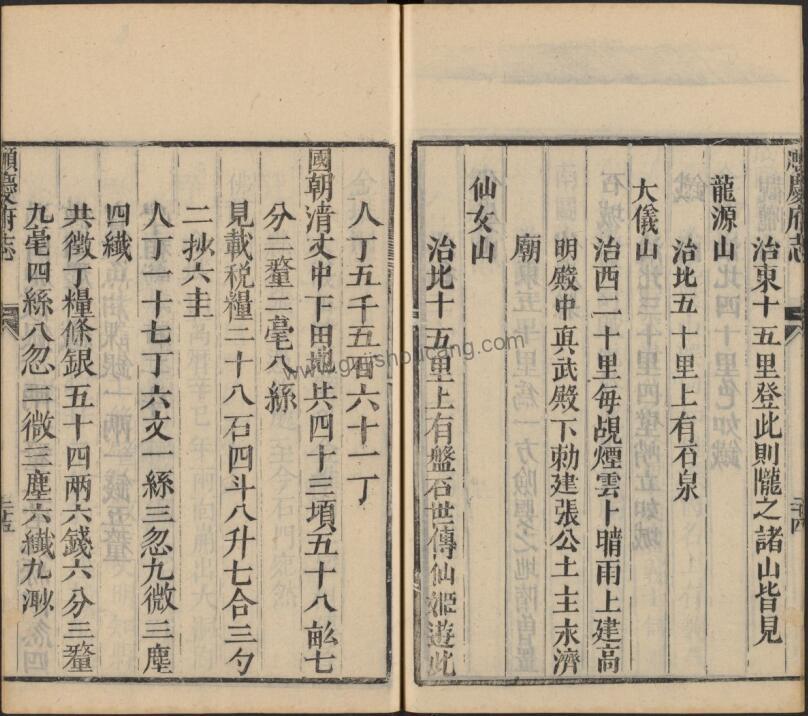 慶府志
治東十五里登此則隴之諸山皆見
龍源山
治北五十里上有石泉
大儀山
治西二十里每覘煙雲卜晴雨上建高
明殿中真武殿下勅建張公土主永濟
廟
仙女山
治北十五里上有盤石世傳仙姬遊此
人丁五千五百六十一丁
國朝清丈中下田地共四十三頃五十八畝七
分二釐二毫八絲
見載稅糧二十八石四斗八升七合三勺
二抄六圭
人丁一十七丁六文一絲三忽九微三塵
四纖
共徵丁糧條銀五十四兩六錢六分三釐
九毫四絲八忽二微三塵六纖九渺
順慶府志
www.gujishoucang.com